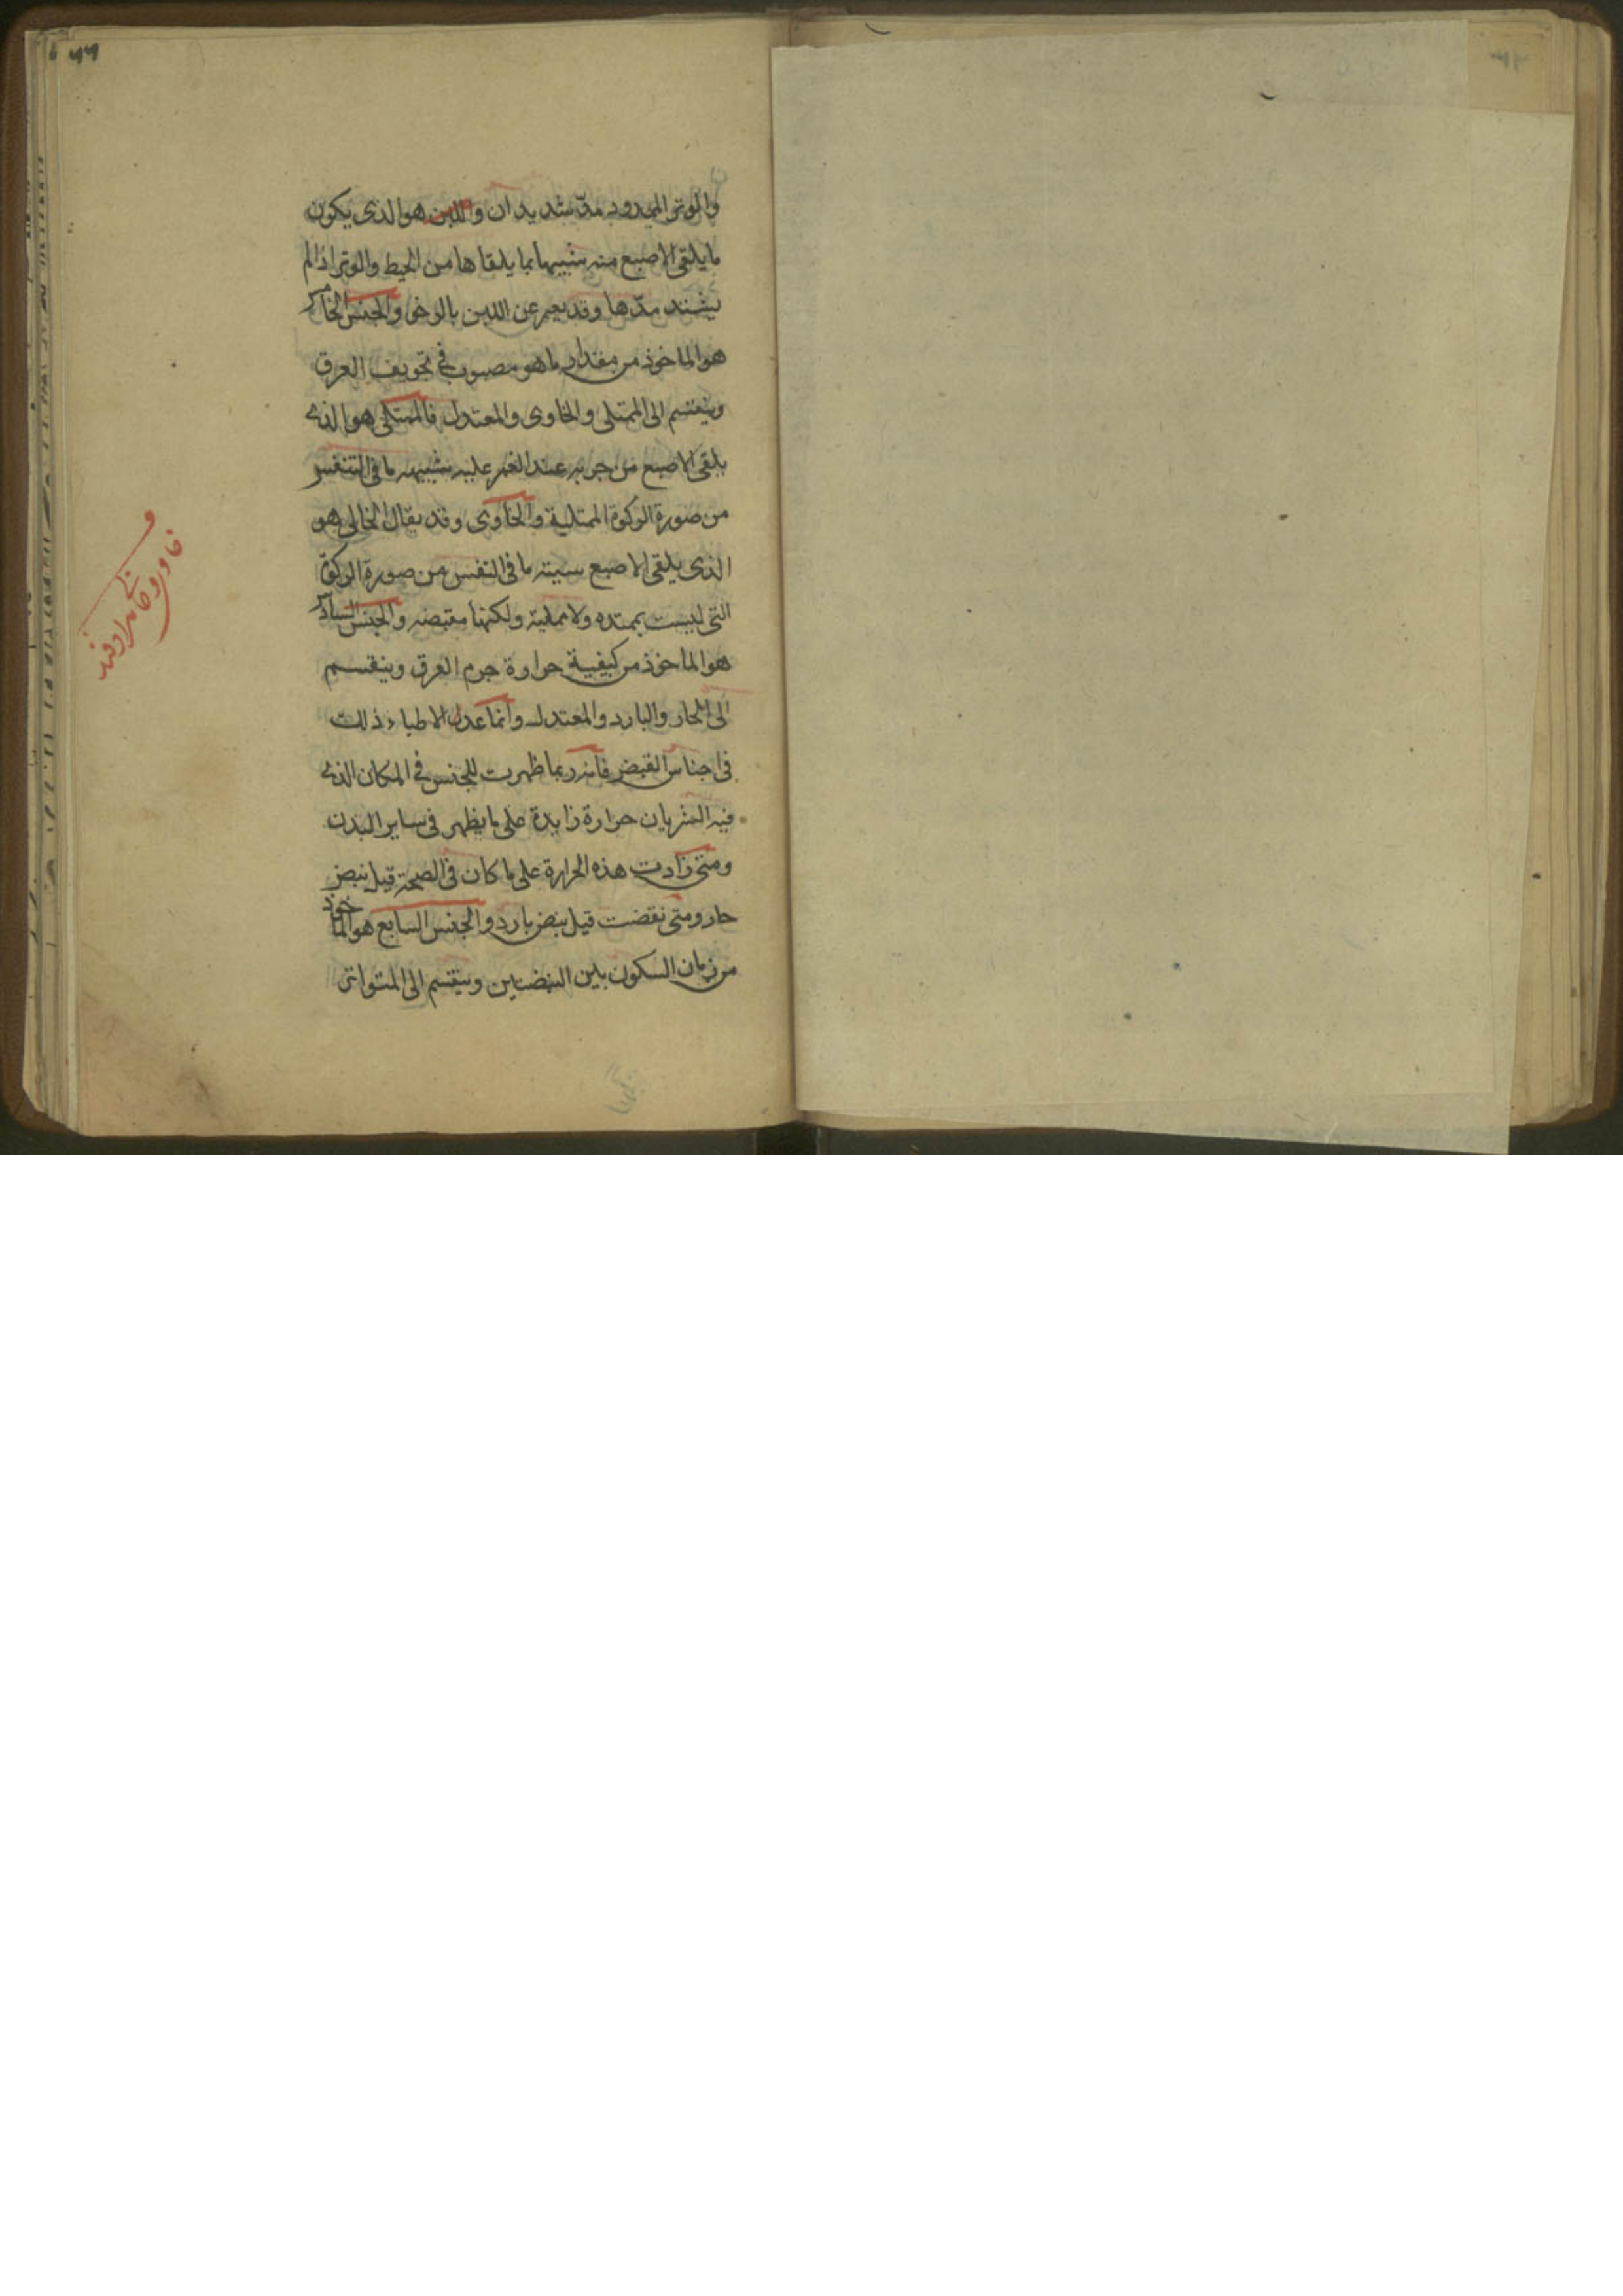 والوتر الممدود مدّ شديدان واللين هو الذى يكون
ما يلقى الاصبع منه شبيها بما يلقاها من الخيط والوتر اذا لم
يشتد مدّها وقد يعبر عن اللين بالرخى والجنس الخامس
هو الماخوذ من مقدار ما هو مصبوب فى تجويف العرق
وينقسم الى الممتلى والخاوى والمعتدل فالممتلى هو الذى
يلقى الاصبع من جرمه عند الغمر عليه شبيه ما فى التنفس
من صورة الركوة الممتلية والخاوى وقد يقال الخالى هو
الذى يلقى الاصبع سيته ما فى النفس من صورة الركوة
التى ليست بممتده ولا مملية ولكنها مقبضه والجنس السادس
هو الماخوذ من كيفية حرارة جرم العرق وينقسم
الى الحار والبارد والمعتدل وانما عدل الاطباء ذلك
فى اجناس القبض فانه ربما ظهرت للجنس فى المكان الذى
فيه الشريان حرارة زايدة على ما يظهر فى ساير البدن
ومتى زادت هذه الحرارة على ما كان فى الصحة قيل نبض
حار ومتى نقضت قيل نبض بارد والجنس السابع هو الماخوذ
من زمان السكون بين النبضتين وينقسم الى المتواتر